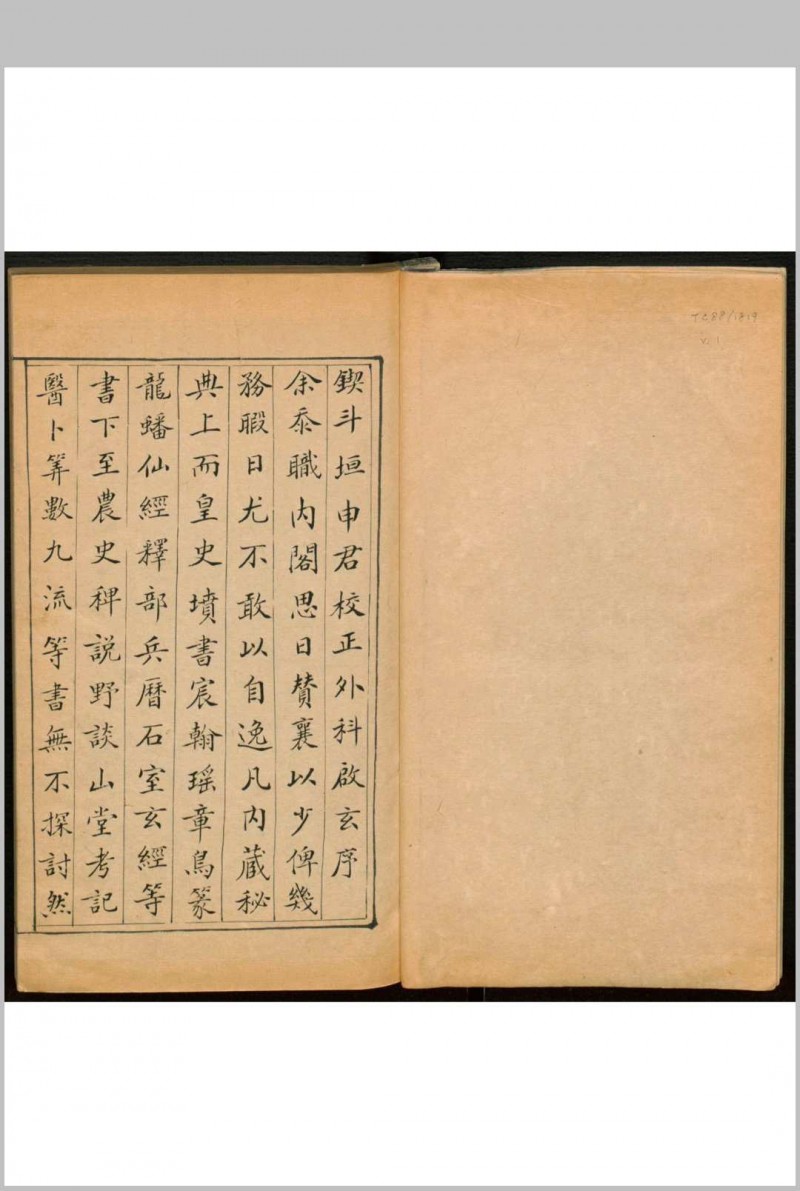 鍥斗垣申君校正外科啟玄序
余忝職內閣思日贊襄以少俾幾
務暇日尤不敢以自逸凡內藏秘
典上而皇史墳書宸翰瑶章鳥篆
龍蟠仙經釋部兵曆石室玄經等
書下至農史稗説野談山堂考記
醫卜筭數九流等書無不探討然
TC88/1819
v. 1